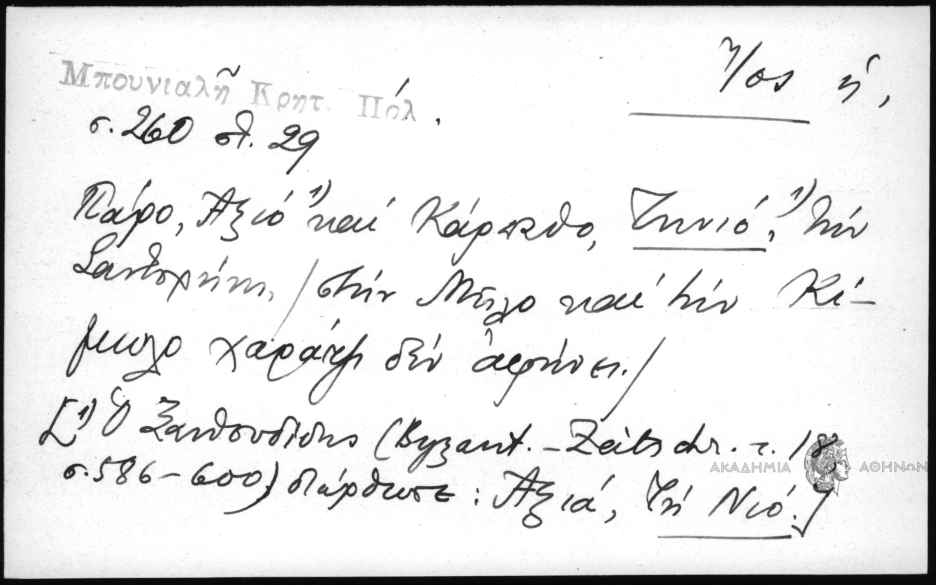 Ἴος ἡ,
Μπουνιαλῆ Κρητ. Πόλ.
σ. 260 στ. 29
Πάρο, Ἀξιό ¹) καί Κάρπαθο, Τηνιό, ¹) τήν
Σαντορήνη, / στήν Μῆλο καί τήν Κί-
μωλο χαράτζι δέν ἀφήνει. /
[¹) Ὁ Ξανθουδίδης (Byzant. - Zeitschr. τ. 18,
σ. 586-600) διόρθωσε: Ἀξιά, τή Νιό.]
ΑΚΑΔΗΜΙΑ ΑΘΗΝΩΝ